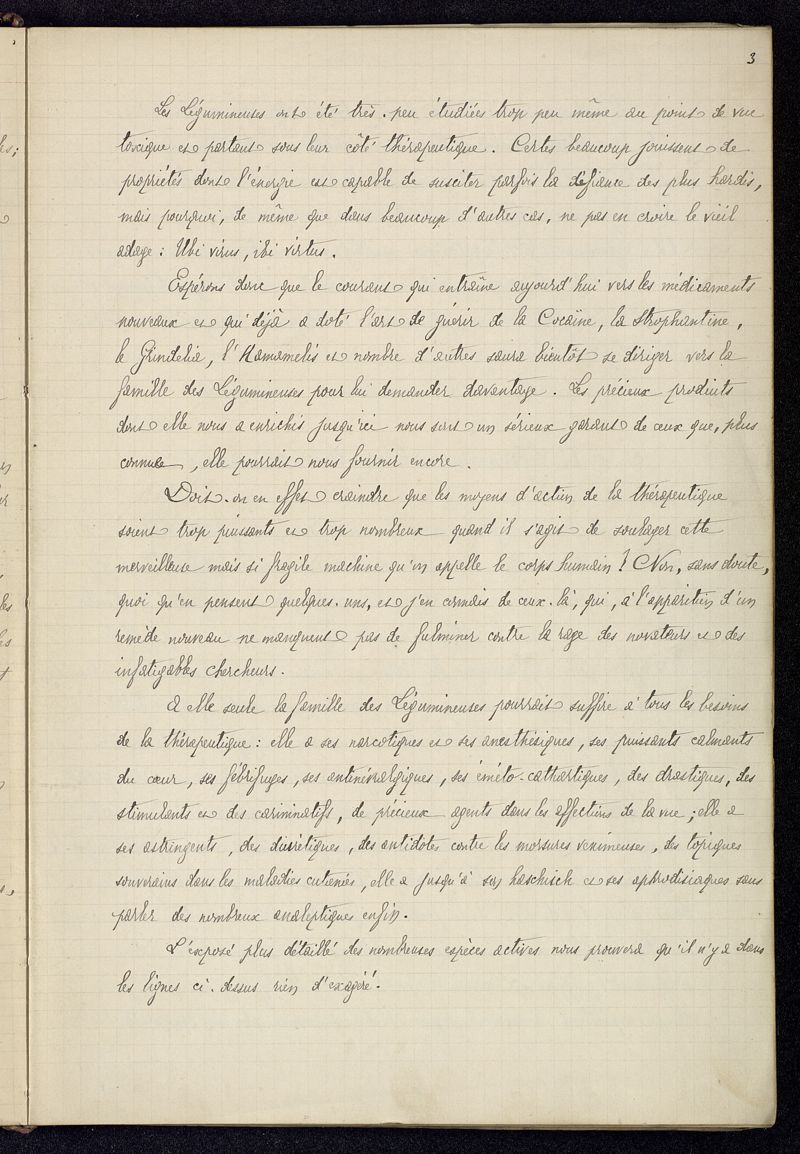 3
Les Légumineuses ont été très-peu étudiées trop peu même au point de vue
toxique et partant sous leur côté thérapeutique. Certes beaucoup jouissent de
propriétés dont l'énergie est capable de susciter parfois la défiance des plus hardis,
mais pourquoi, de même que dans beaucoup d'autres cas, ne pas en croire le vieil
adage : Ubi virus, ibi virtus.
Espérons donc que le courant qui entraîne aujourd'hui vers les médicaments
nouveaux et qui déjà a doté l'art de guérir de la Cocaïne, la Strophantine,
le Grindelia, l'Hamamelis et nombre d'autres saura bientôt se diriger vers la
famille des Légumineuses pour lui demander davantage. Les précieux produits
dont elle nous a enrichis jusqu'ici nous sont un sérieux garant de ceux que, plus
connue, elle pourrait nous fournir encore.
Doit-on en effet craindre que les moyens d'action de la thérapeutique
soient trop puissants et trop nombreux quand il s'agit de soulager cette
merveilleuse mais si fragile machine qu'on appelle le corps humain ? Non, sans doute,
quoi qu'en pensent quelques-uns, et j'en connais de ceux-là, qui, à l'apparition d'un
remède nouveau ne manquent pas de fulminer contre la rage des novateurs et des
infatigables chercheurs.
A elle seule la famille des Légumineuses pourrait suffire à tous les besoins
de la thérapeutique : elle a ses narcotiques et ses anesthésiques, ses puissants calmants
du cœur, ses fébrifuges, ses antinévralgiques, ses éméto-cathartiques, des drastiques, des
stimulants et des carminatifs, de précieux agents dans les affections de la vue ; elle a
ses astringents, des diurétiques, des antidotes contre les morsures venimeuses, des topiques
souverains dans les maladies cutanées, elle a jusqu'à son haschisch et ses aphrodisiaques sans
parler des nombreux analeptiques enfin.
L'exposé plus détaillé des nombreuses espèces actives nous prouvera qu'il n'y a dans
les lignes ci-dessus rien d'exagéré.